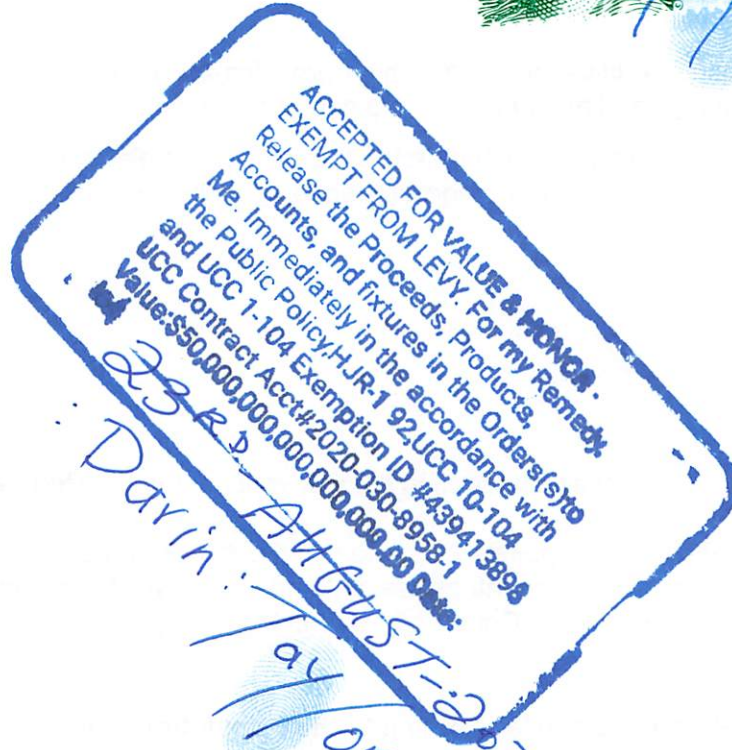 ACCEPTED FOR VALUE & HONOR.
EXEMPT FROM LEVY. For my Remedy,
Release the Proceeds, Products,
Accounts, and fixtures in the Orders(s)to
Me. Immediately in the accordance with
the Public Policy,HJR-1 92,UCC 10-104
and UCC 1-104 Exemption ID #439413898
UCC Contract Acct#2020-030-8958-1
Value:$50,000,000,000,000,000,000.00 Date:
23RD-AUGUST-
: Darin : Taylor